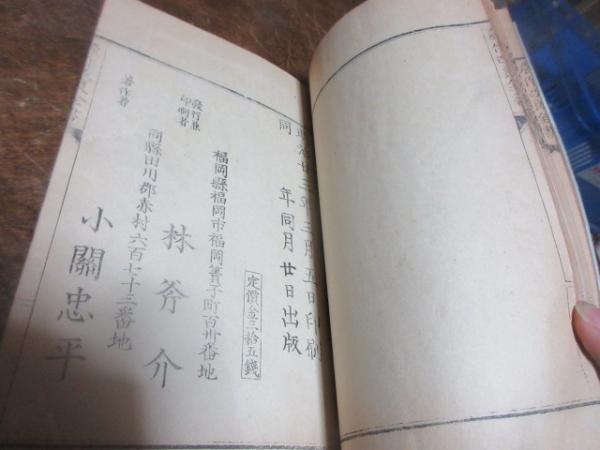 明治廿三年三月五日印刷
同年同月廿日出版
定價金三拾五錢
福岡縣福岡市福岡簀子町百卅番地
發行兼
印刷者
林斧介
同縣田川郡赤村六百七十三番地
著作者
小關忠平